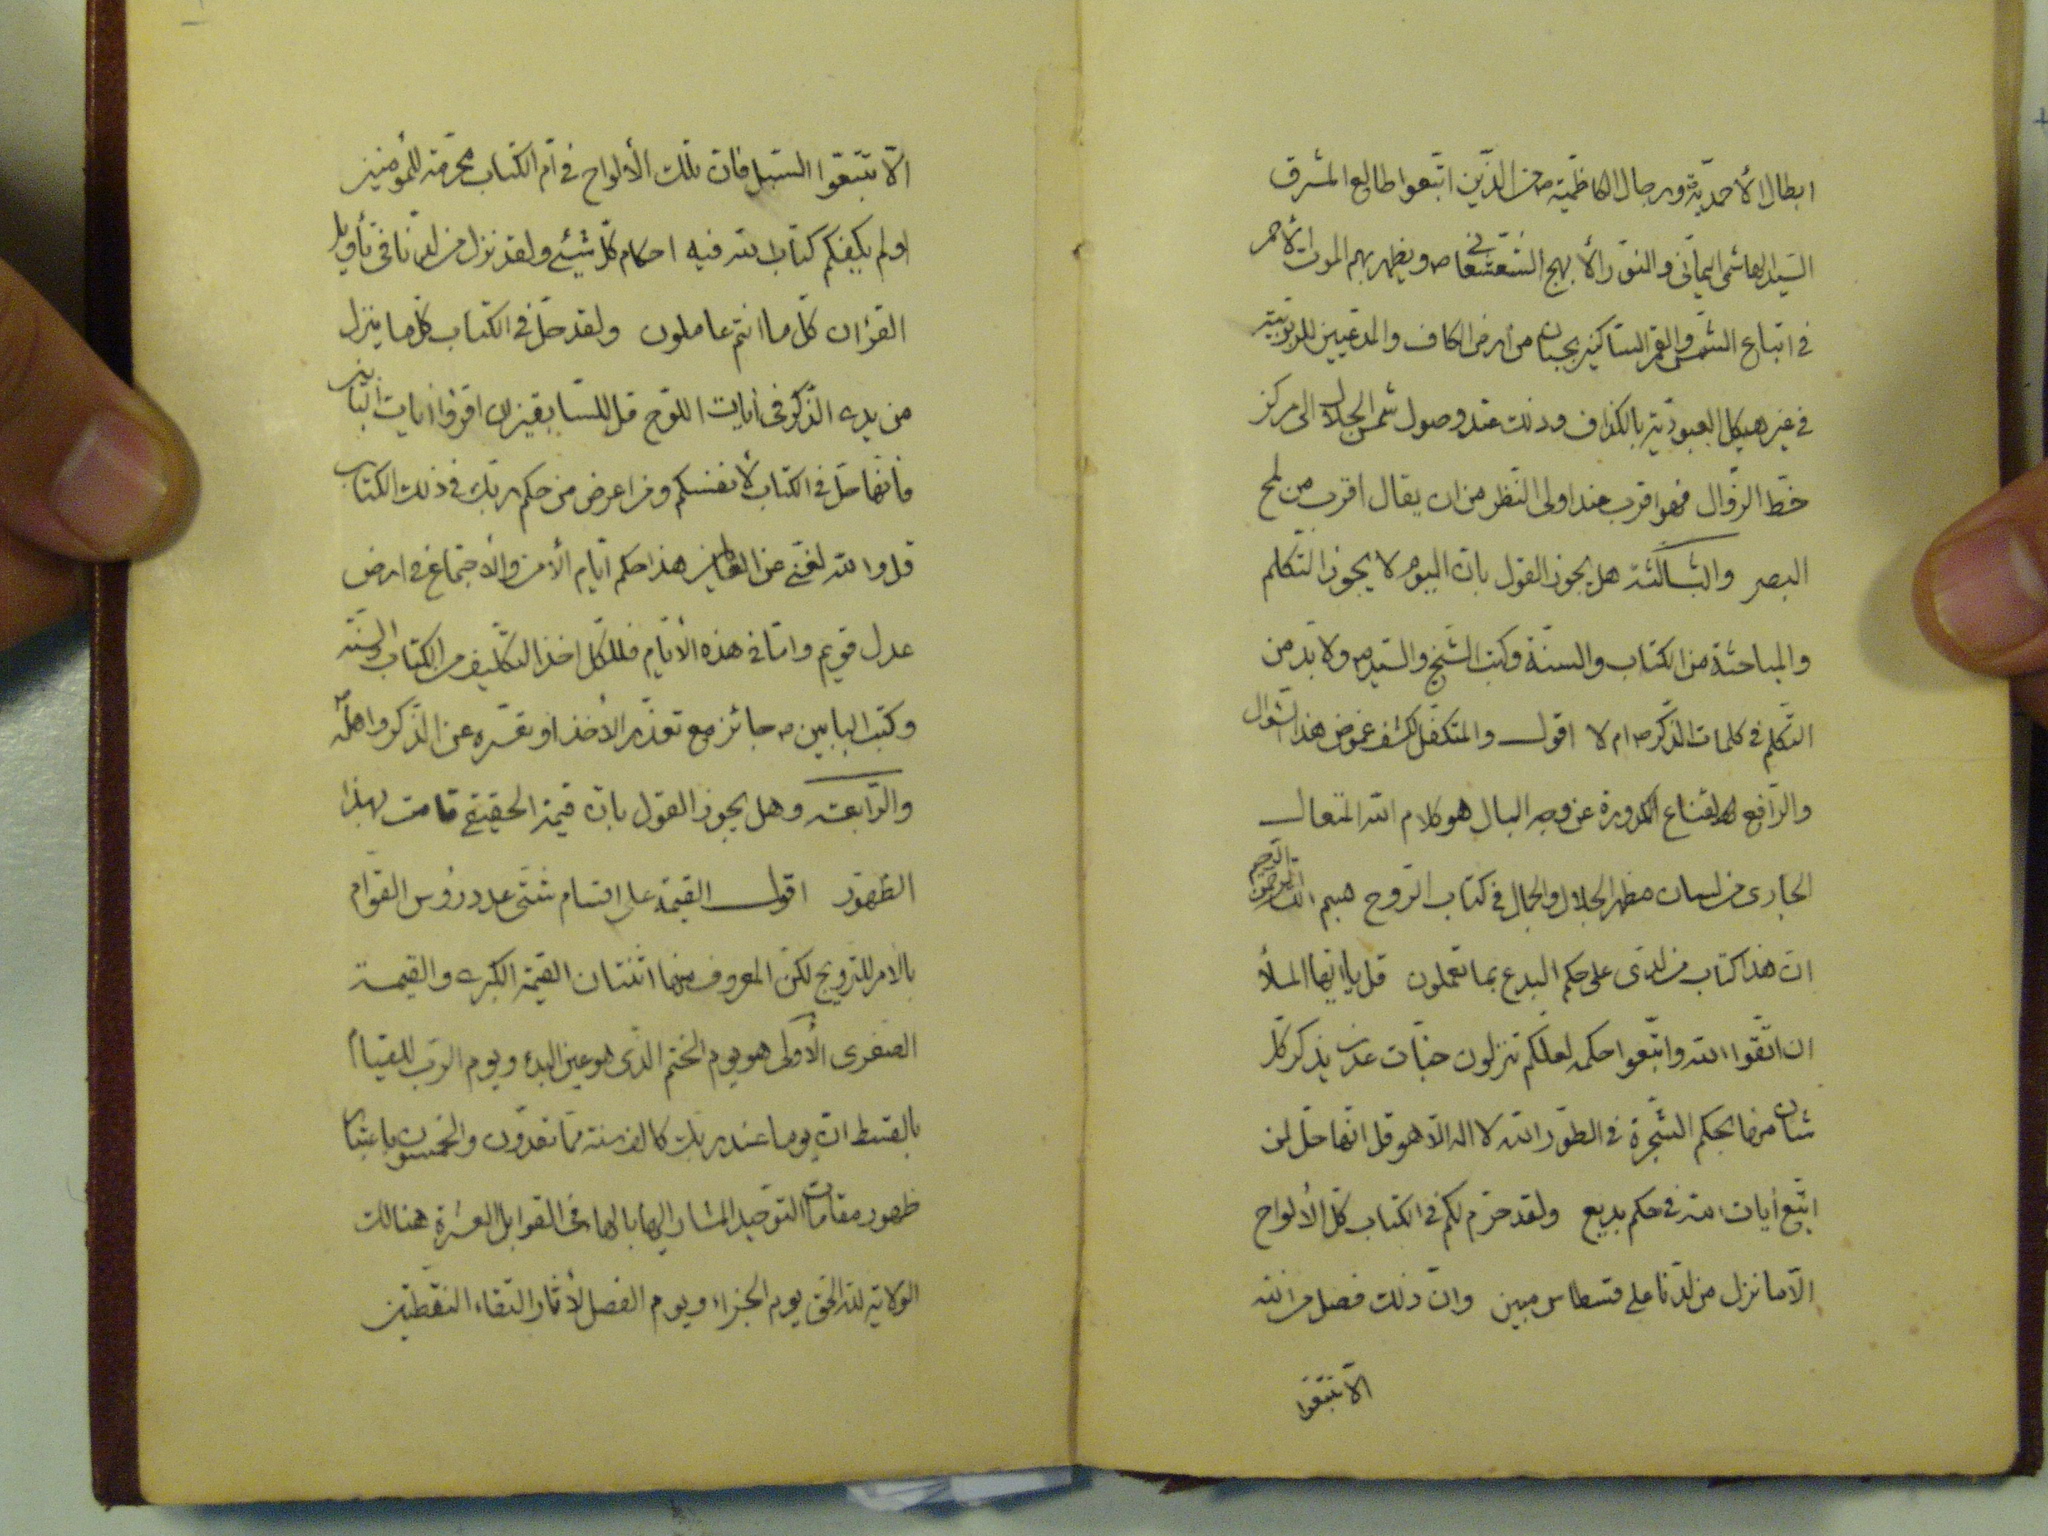 ابطال الأحمدیّة ورجال الکاظمیّة من الذّین اتّبعوا طالع المشرق
السّید الهاشمی الیمانی والنوّر الأبهج الشعشعانی ص ویظهر بهم الموت الأحمر
فی اتباع الشمس والقمر الساکنین بجسبان من أرض الکاف والمدّعیین للربوبیّته
فی غیر هیکل العبودیّته بالکذاف وذلک عند وصول شمس الجلال الی مرکز
خطّ الزوّال فهو اقرب عند اولی النّظر من ان یقال اقرب من لمح
البصر والثالثة هل یجوز القول بان الیوم لا یجوز التّکلم
والمباحثة من الکتاب والسنّة وکتب الشّیخ والسّید ص ولابدّ من
التّکلم فی کلمات الذّکر ص ام لا اقول والمتکفّل لکشف غموض هذا السّوال
والرّافع لقناع الکدورة عن وجه البال هو کلام الله المتعال
الجاری من لسان مظهر الجلال والجمال فی کتاب الرّوح بسم الله الرحمن الرحیم
ان هذا کتاب من لدی علی حکم البدع بما تعملون قل یا ایّها الملأ
ان اتّقوا الله واتّبعوا حکمه لعلّکم تنزلون جنّات عدن یذکر کلّ
شان منها بحکم الشّجرة فی الطوّر الله لا اله الّا هو قل انّها حلّ لمن
اتّبع أیات الله فی حکم بدیع ولقد حرّم لکم فی الکتاب کلّ الألواح
الّا ما نزل من لدّنا علی قسطاس مبین وانّ ذلک فضل من الله
الّا تتّبعوا
الّا تتّبعوا السّبل فانّ تلک الألواح فی أم الکتاب محرّمة للمؤمنین
اولم یکفکم کتاب الله فیه احکام کلّ شیئ ولقد نزل من لدنّا فی تأویل
القرٔان کلّ ما انتم عاملون ولقد حلّ فی الکتاب کلّ ما ینزل
من یدی الذّکر فی أیات اللوّح قل للسّابقین ان اقرؤا أیات البابین
فانّها حلّ فی الکتاب لأنفسکم ومن اعرض من حکم ربّک فی ذلک الکتاب
قل والله لغنّی عن العالمین هذا حکم ایّام الأمن والأجتماع فی ارض
عدل قویم وامّا فی هذه الأیّام فللکل اخذ التکّلیف من الکتاب والسنّة
وکتب البابین ص جائز مع تعذّر الأخذ او تعسّره عن الذّکر واهله
والرّابعة وهل یجوز القول بانّ قیمة الحقیقی قامت بهذا
الظهوّر اقول القیمة علی اقسام شتّی عدد رؤس القوّام
بالأمر للتّرویج لکنّ المعروف منهما اثنتان القیمة الکبری والقیمة
الصغری الأولی هو یوم الختم الذّی هو عین البدء ویوم الرّب للقیام
بالقسط انّ یوما عند ربّک کالف سنة ممّا تعدّون والخمسون باعتبار
ظهور مقامات التوّحید المشار الیها بالهاء فی القوابل العشرة هنالک
الولایة لله الحق یوم الجزاء ویوم الفصل لأثار التقاء النقطتین